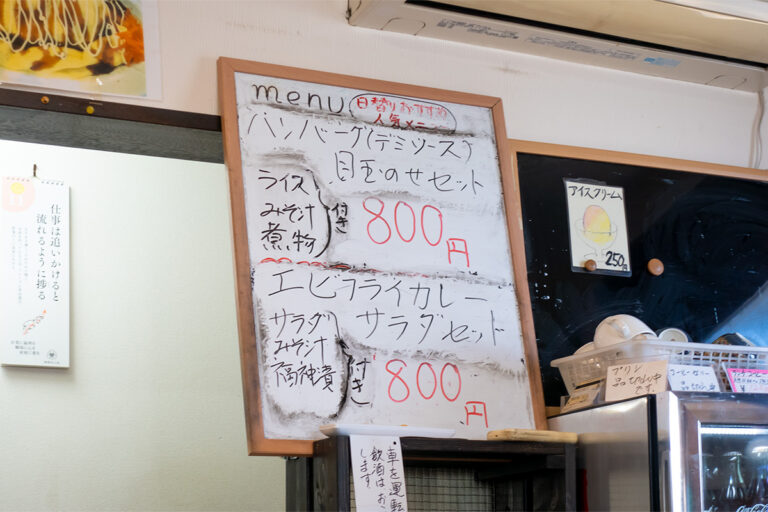 menu
日替りおすすめ
人気メニュー
ハンバーグ(デミソース)
目玉のせセット
ライス
みそ汁
煮物
付き
800円
エビフライカレー
サラダセット
サラダ
みそ汁
福神漬
付き
800円
アイスクリーム
250円
仕事は追いかけると
流れるように捗る
11
プリン
品切れ中
です。
コーヒーゼリー
車を運転
飲酒はお
します。